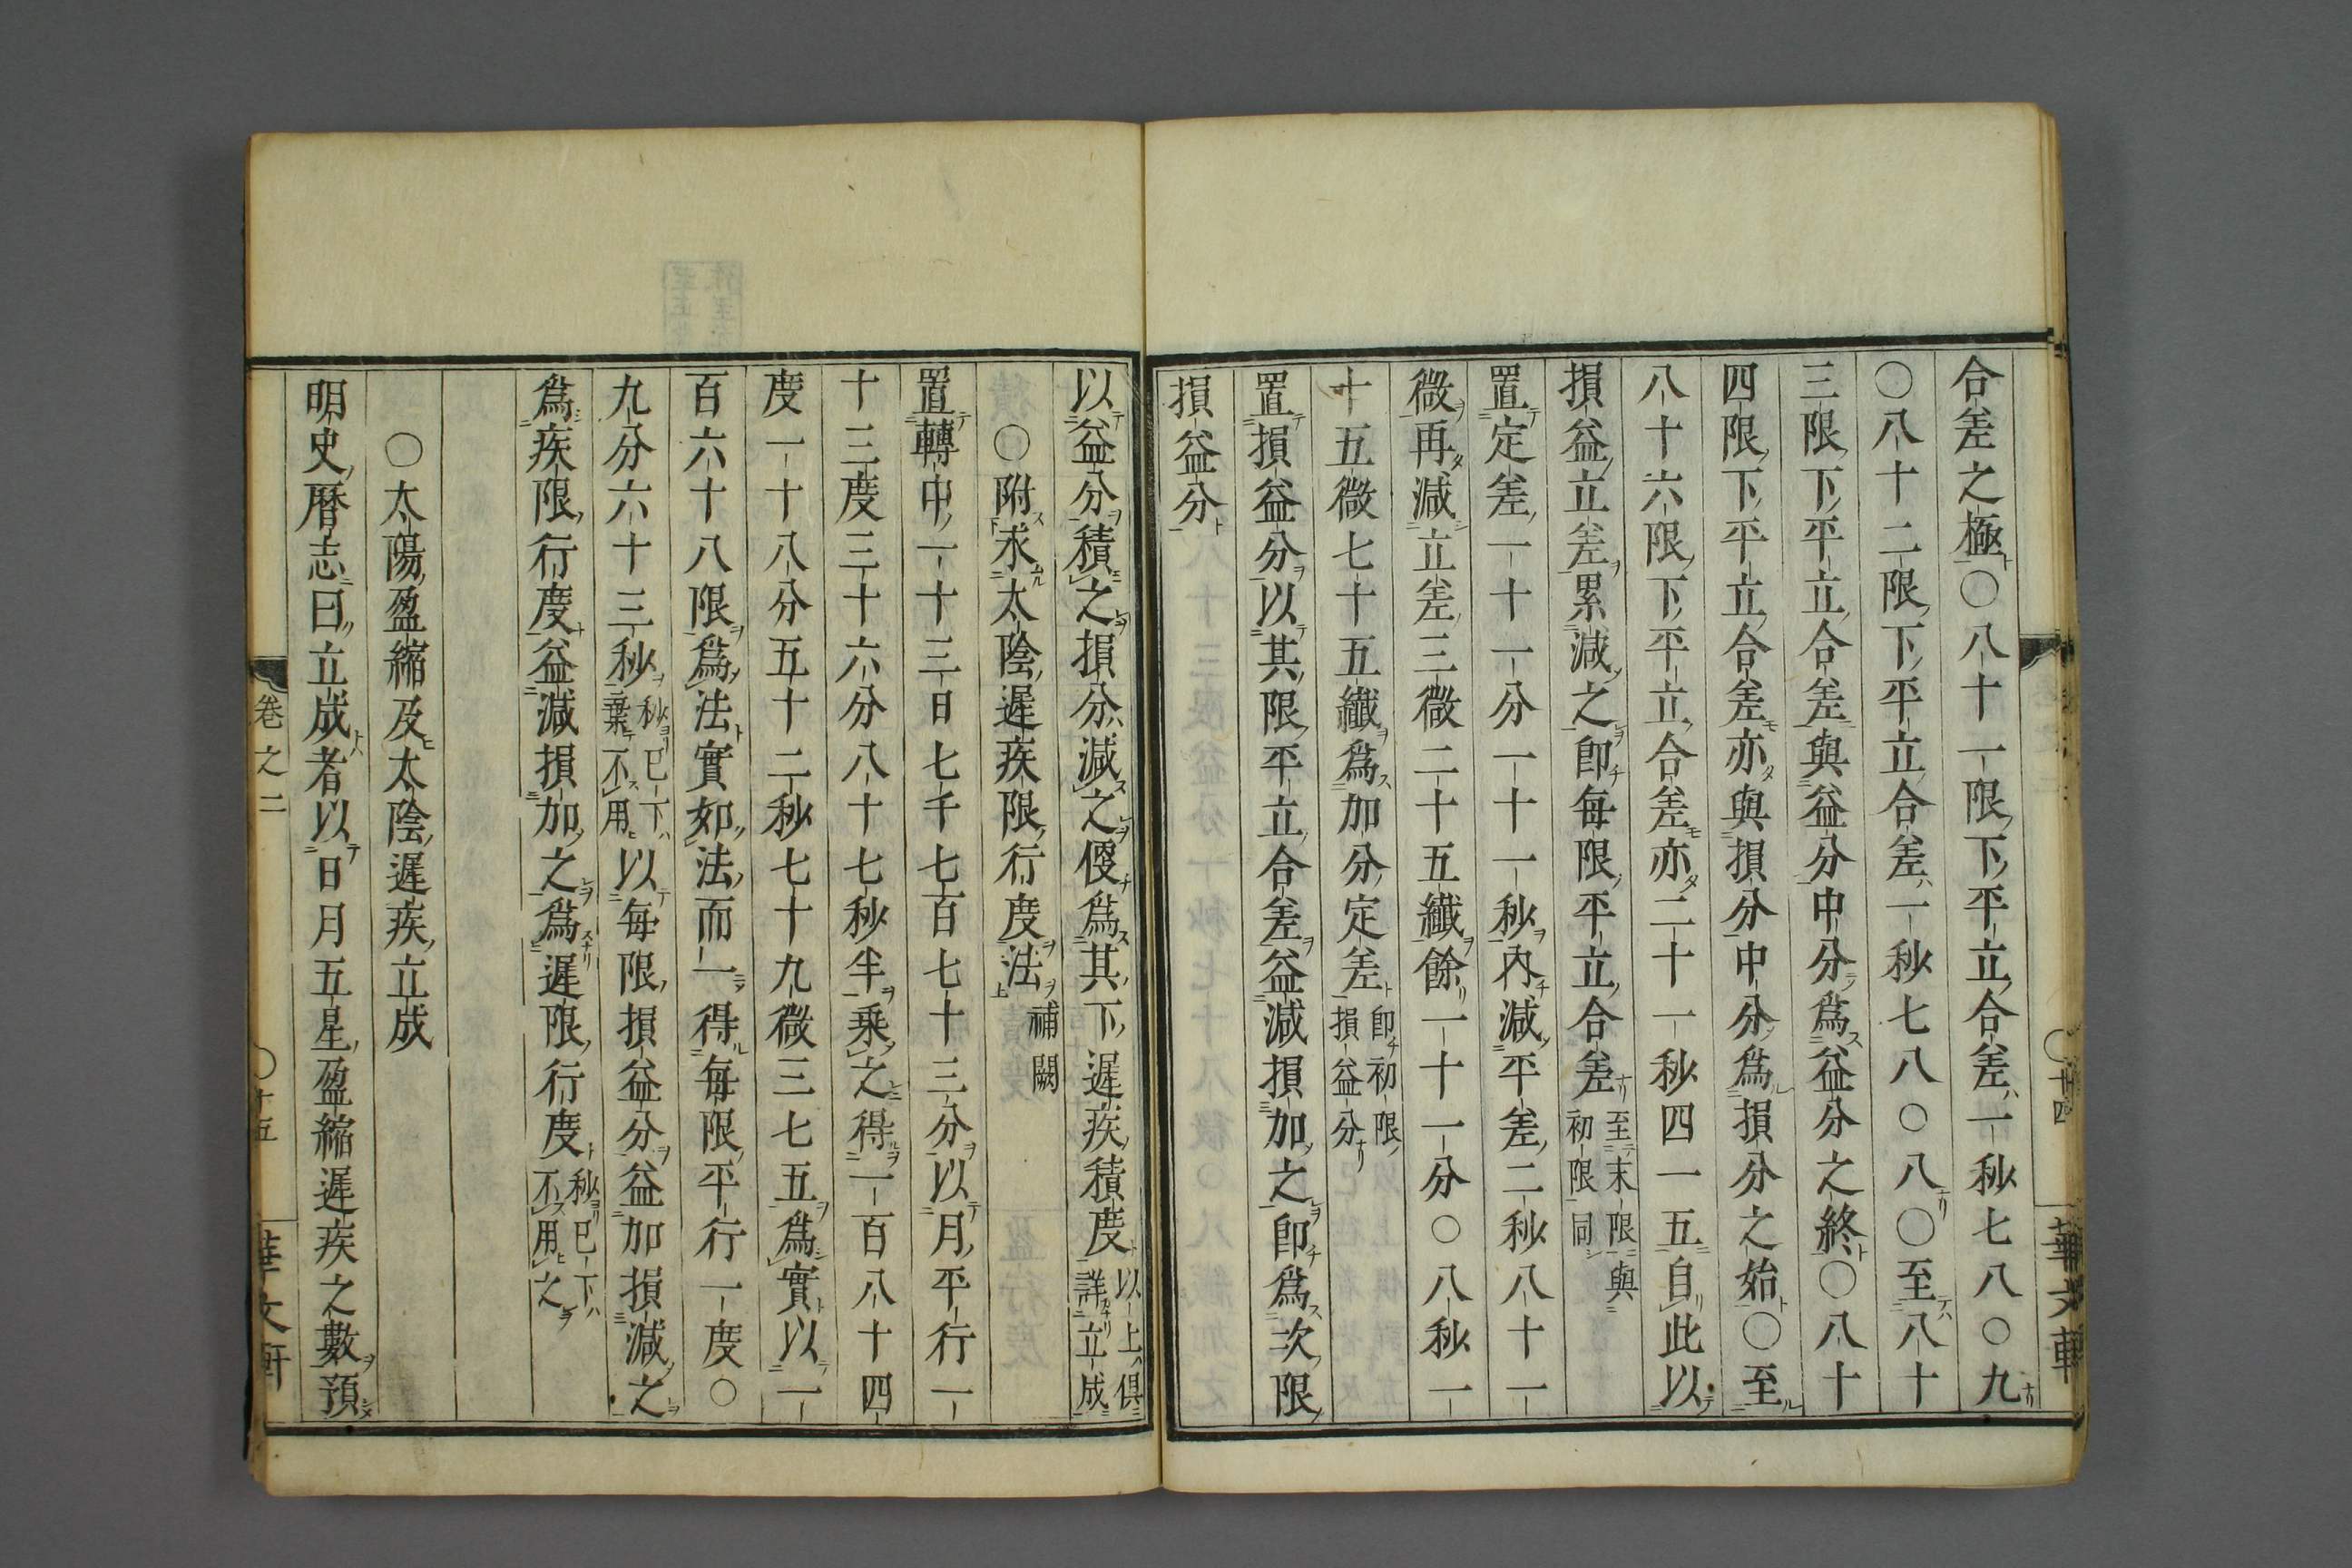 合差之極〇八十一限下平立合差一秒七八〇九
〇八十二限下平立合差一秒七八〇八〇至八十
三限下平立合差與益分中分爲益分之終〇八十
四限下平立合差亦與損分中分爲損分之始〇至
八十六限下平立合差亦二十一秒四一五自此以
損益立差累減之卽每限平立合差至末限與初限同
置定差一十一分一十一秒內減平差二秒八十一
微再減立差三微二十五纖餘一十一分〇八秒一
十五微七十五纖爲加分定差卽初限損益分
置損益分以其限平立合差益減損加之卽爲次限
損益分
以益分積之損分減之便爲其下遲疾積度以上俱詳立成
〇附求太陰遲疾限行度法補闕
置轉中一十三日七千七百七十三分以月平行一
十三度三十六分八十七秒半乘之得一百八十四
度一十八分五十二秒七十九微三七五爲實以一
百六十八限爲法實如法而一得每限平行一度〇
九分六十三秒秒已下棄不用以每限損益分益加損減之
爲疾限行度益減損加之爲遲限行度秒已下不用之
〇太陽盈縮及太陰遲疾立成
明史曆志曰立成者以日月五星盈縮遲疾之數預
十四
華文軒
卷之二
〇十五
華文軒